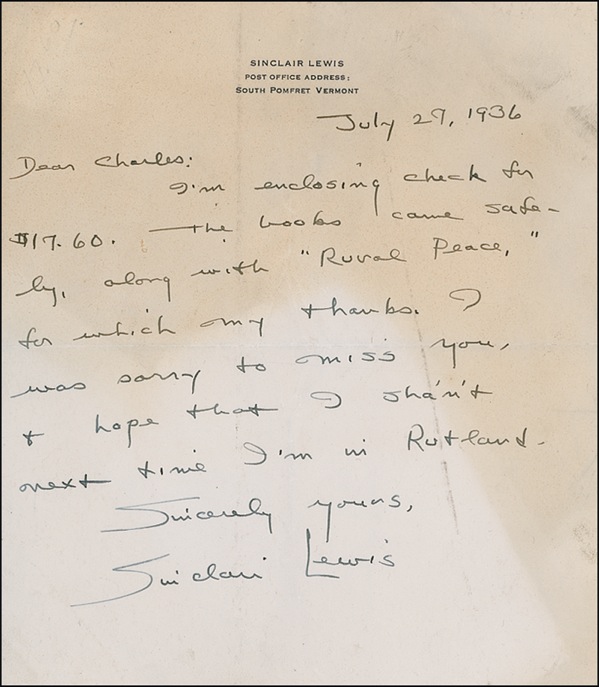 SINCLAIR LEWIS
POST OFFICE ADDRESS:
SOUTH POMFRET VERMONT
July 27, 1936
Dear Charles:
I'm enclosing check for
$17.60. The books came safe-
ly, along with "Rural Peace,"
for which my thanks. I
was sorry to miss you,
& hope that I sha'n't
next time I'm in Rutland.
Sincerely yours,
Sinclair Lewis